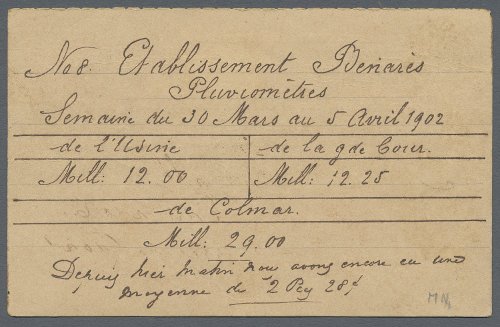 No 8. Etablissement Bénarès
Pluviomètres
Semaine du 30 Mars au 5 Avril 1902
de l'Usine de la gde Cour.
Mill: 12.00 Mill: 12.25
de Colmar.
Mill: 29.00
Depuis hier matin nous avons encore eu une
moyenne de 2 28